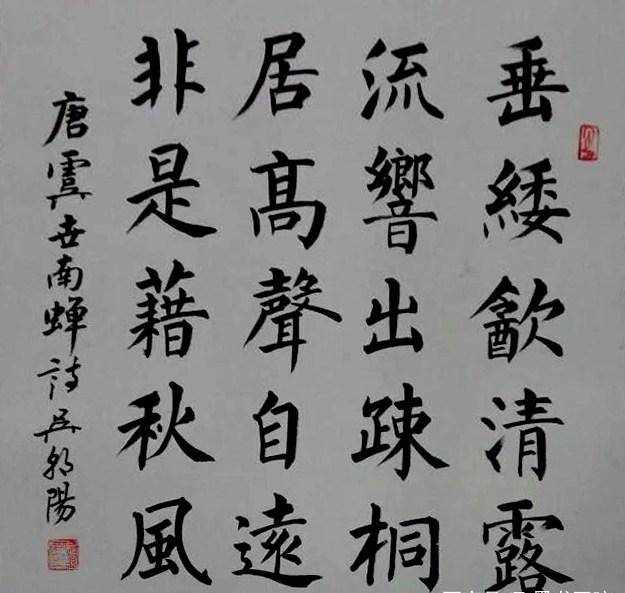 垂緌飲清露
流響出踈桐
居高聲自遠
非是藉秋風
唐虞世南蟬詩吳
陽